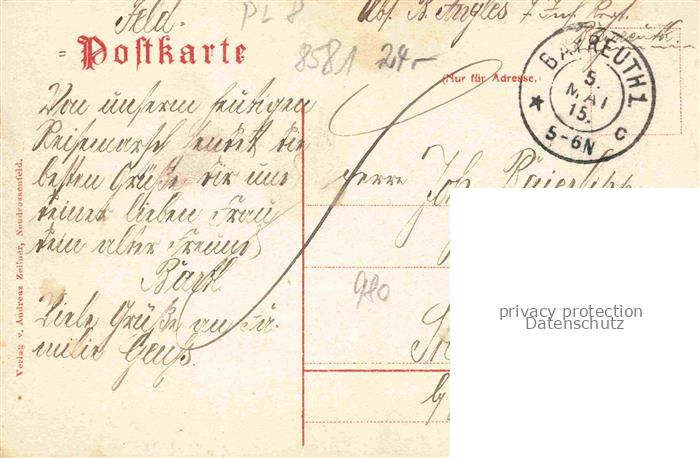 Feld-
= Postkarte
PL 8
8581 24,-
Abs. B. Angles 7 Inf. Rgt.
Bayreuth
(Nur für Adresse.)
BAYREUTH 1
5.
MAI
15.
5-6N
C
Von unserm heutigen
Reisemarsch sendet die
besten Grüße dir und
deiner lieben Frau
dein alter Freund
Bartl
Viele Grüße an Fa-
milie Geuß.
Herrn Joh.
980
Verlag v. Andreas Zeilner, Neudrossenfeld.
privacy protection
Datenschutz